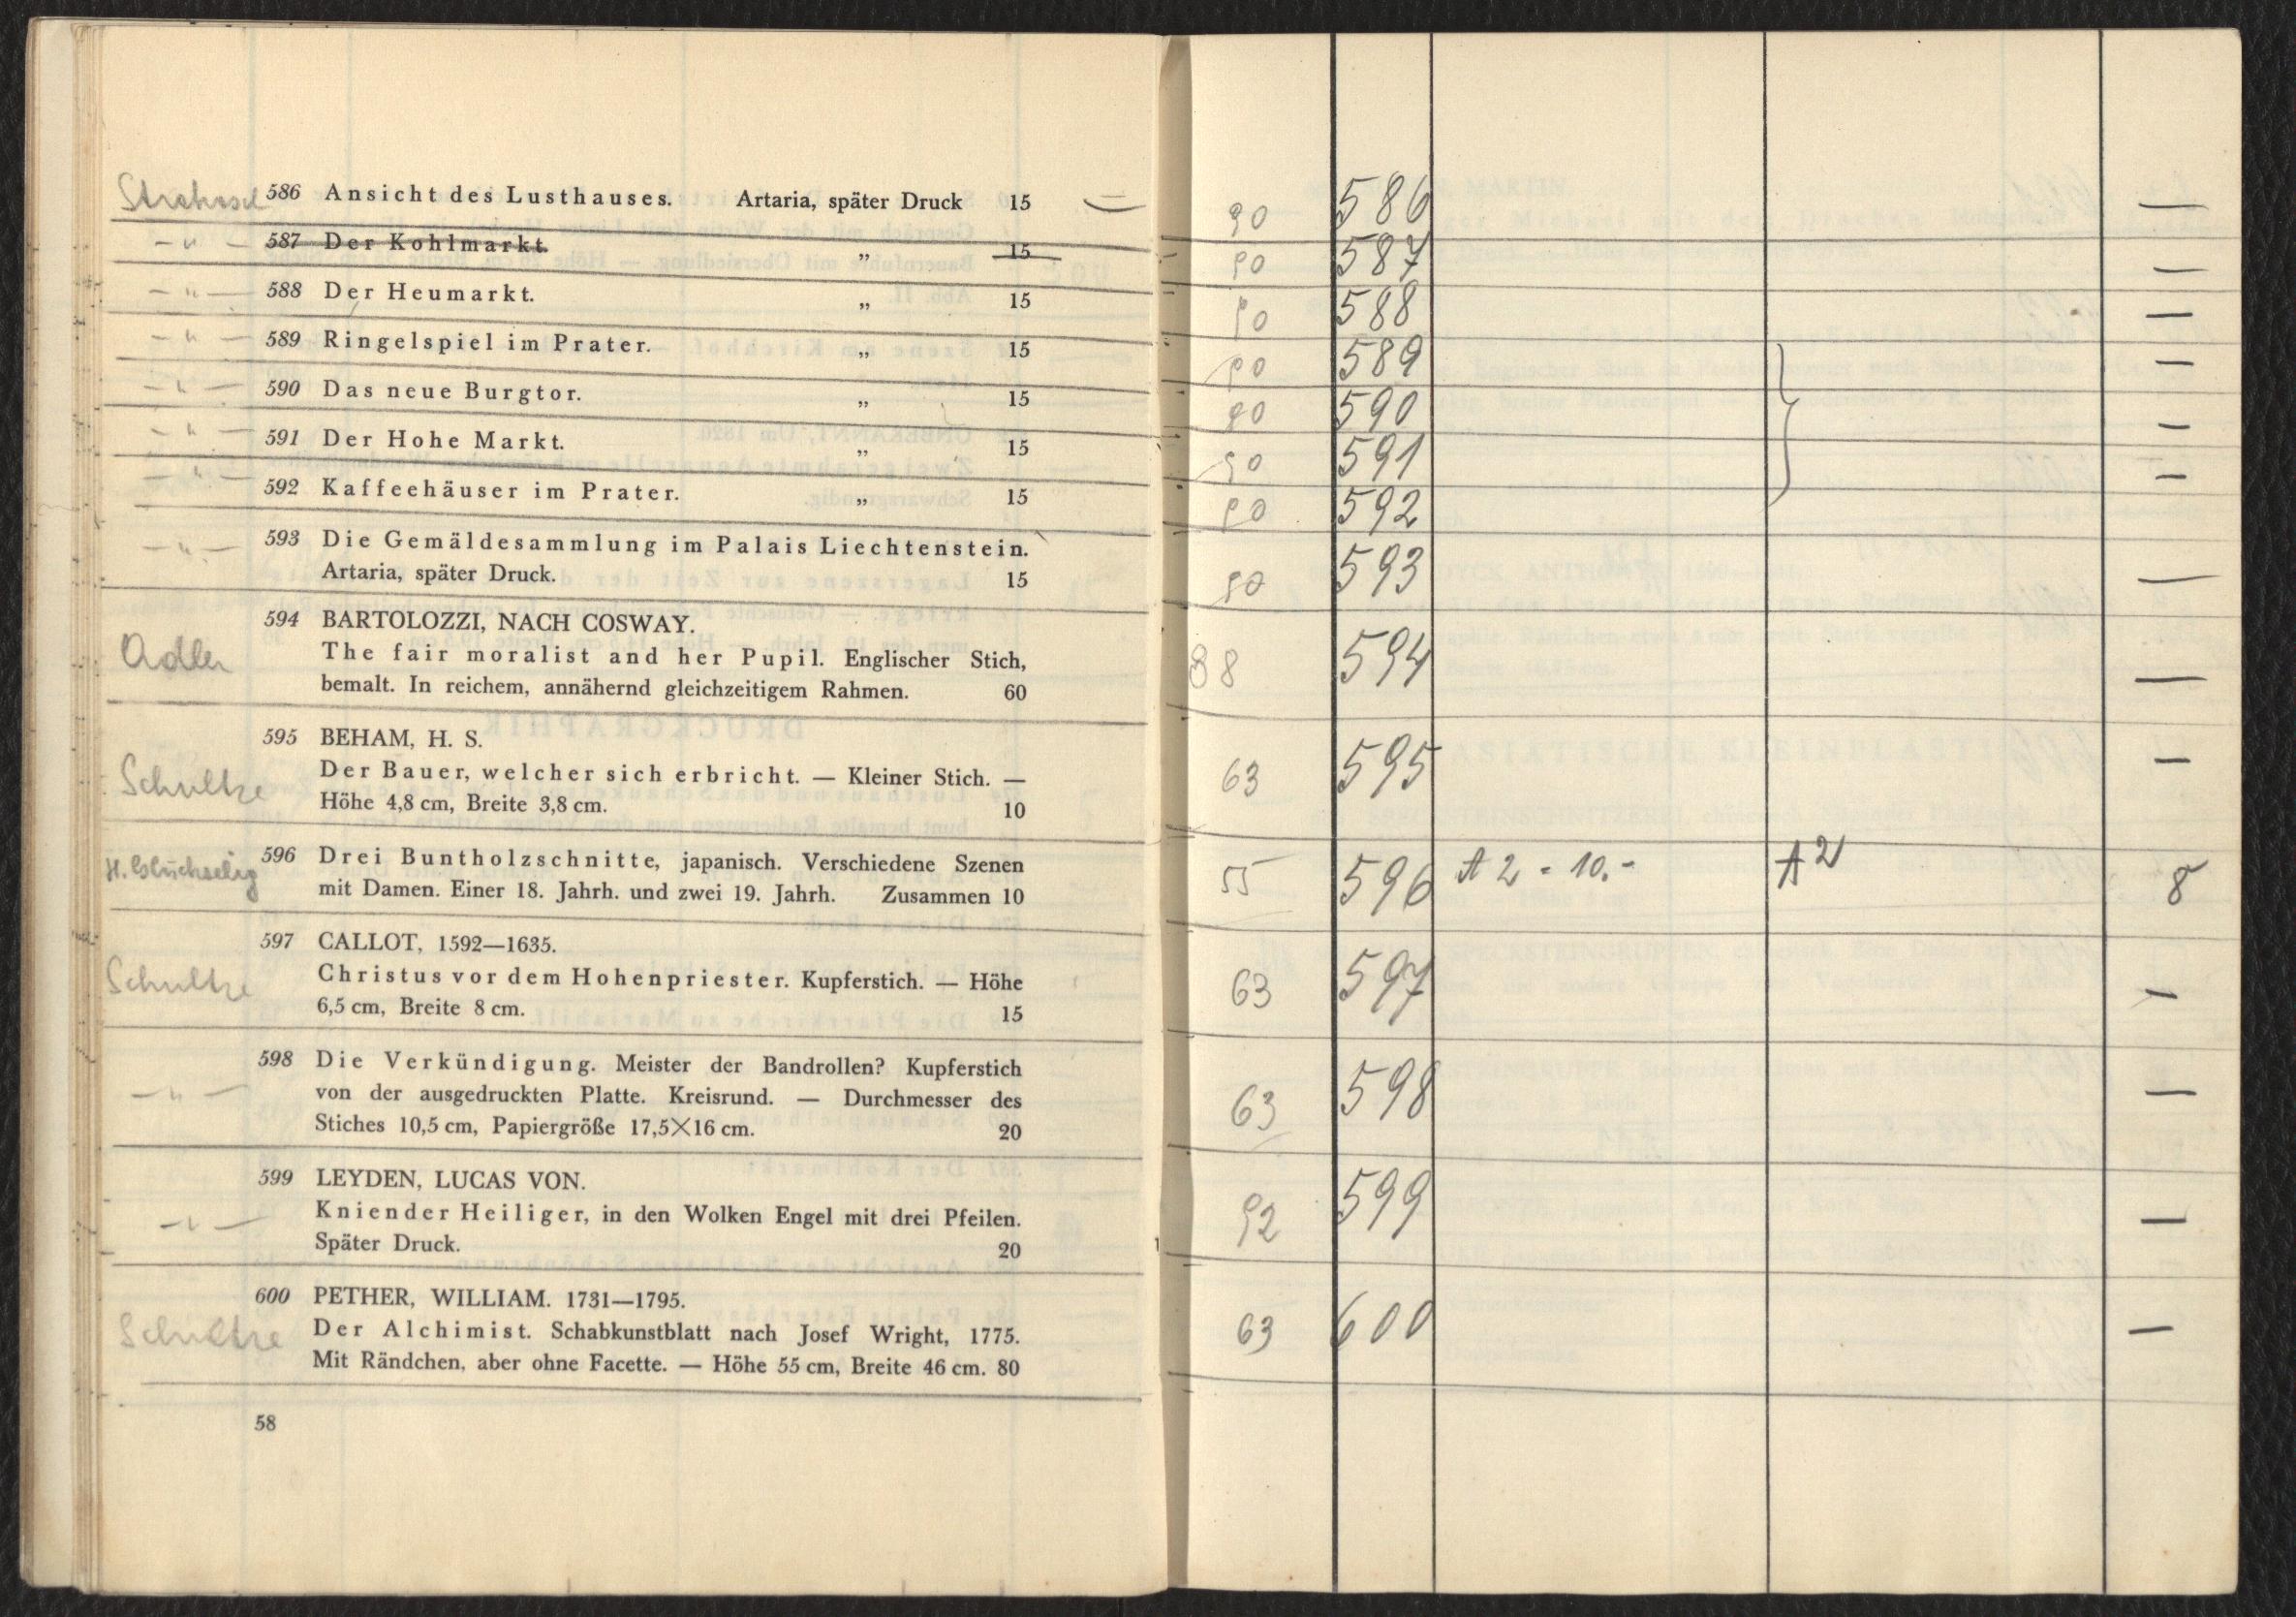 586 Ansicht des Lusthauses. Artaria, später Druck 15
—"— 587 Der Kohlmarkt. „ 15
—"— 588 Der Heumarkt. „ 15
—"— 589 Ringelspiel im Prater. „ 15
—"— 590 Das neue Burgtor. „ 15
—"— 591 Der Hohe Markt. „ 15
—"— 592 Kaffeehäuser im Prater. „ 15
—"— 593 Die Gemäldesammlung im Palais Liechtenstein.
Artaria, später Druck. 15
594 BARTOLOZZI, NACH COSWAY.
Adler The fair moralist and her Pupil. Englischer Stich,
bemalt. In reichem, annähernd gleichzeitigem Rahmen. 60
595 BEHAM, H. S.
Schultze Der Bauer, welcher sich erbricht. — Kleiner Stich. —
Höhe 4,8 cm, Breite 3,8 cm. 10
H. Glückselig 596 Drei Buntholzschnitte, japanisch. Verschiedene Szenen
mit Damen. Einer 18. Jahrh. und zwei 19. Jahrh. Zusammen 10
597 CALLOT, 1592—1635.
Schultze Christus vor dem Hohenpriester. Kupferstich. — Höhe
6,5 cm, Breite 8 cm. 15
598 Die Verkündigung. Meister der Bandrollen? Kupferstich
—"— von der ausgedruckten Platte. Kreisrund. — Durchmesser des
Stiches 10,5 cm, Papiergröße 17,5×16 cm. 20
599 LEYDEN, LUCAS VON.
—"— Kniender Heiliger, in den Wolken Engel mit drei Pfeilen.
Später Druck. 20
600 PETHER, WILLIAM. 1731—1795.
Schultze Der Alchimist. Schabkunstblatt nach Josef Wright, 1775.
Mit Rändchen, aber ohne Facette. — Höhe 55 cm, Breite 46 cm. 80
58
90 586 —
90 587 —
90 588 —
90 589 —
90 590 —
90 591 —
90 592
90 593 —
88 594 —
63 595 —
55 596 A 2 - 10.- A2 8
63 597 —
63 598 —
92 599 —
63 600 —